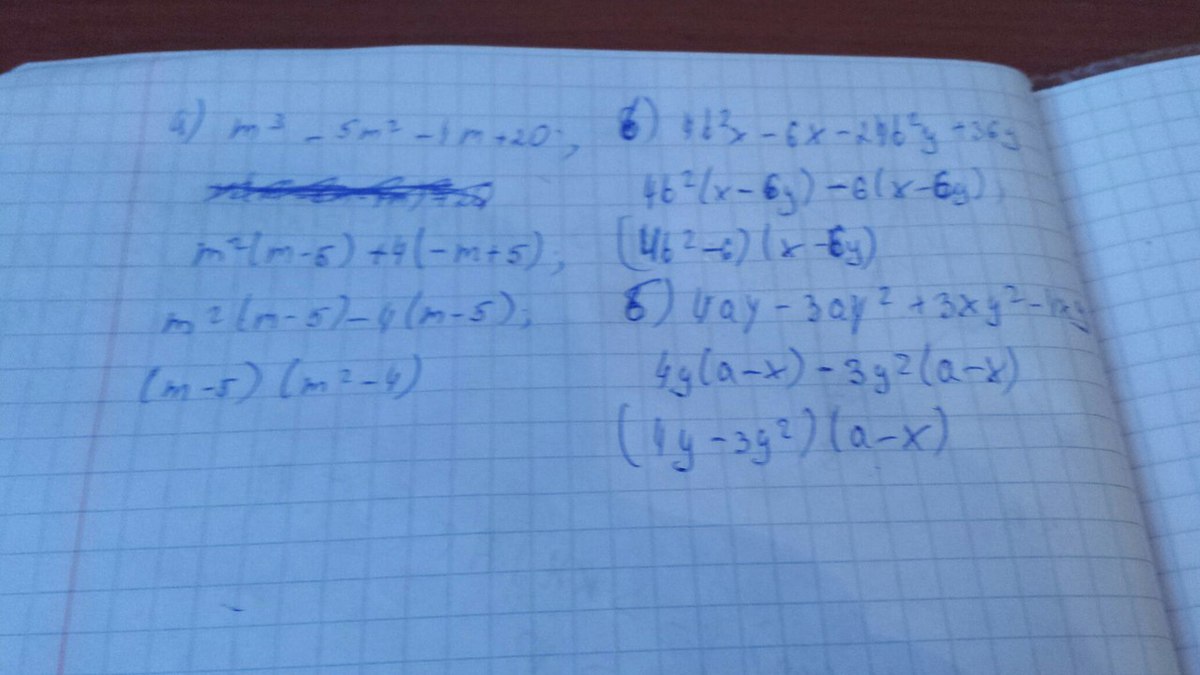 а) m³ - 5m² - 4m + 20;
m²(m-5) + 4(-m+5);
m²(m-5) - 4(m-5);
(m-5)(m²-4)
в) 4b²x - 6x - 24b²y + 36y
4b²(x-6y) - 6(x-6y);
(4b²-6)(x-6y)
б) 4ay - 3ay² + 3xy² - 4xy
4y(a-x) - 3y²(a-x)
(4y-3y²)(a-x)